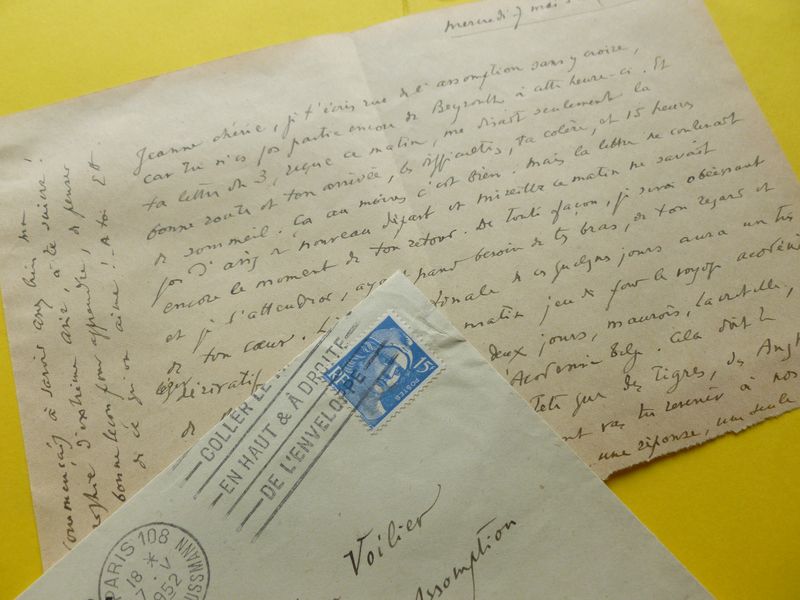 Mercredi 7 mai
Jeanne chérie, je t'écris rue de l'assomption sans y croire,
car tu n'es pas partie encore de Beyrouth à cette heure-ci. Et
ta lettre du 3, reçue ce matin, me disait seulement la
bonne route et ton arrivée, les difficultés, ta colère, et 15 heures
de sommeil. Ça au moins c'est bien. Mais la lettre ne contenait
pas d'avis de nouveau départ et Mireille ce matin ne savait
encore le moment de ton retour. De toute façon, je serai obéissant
et je t'attendrai, ayant grand besoin de tes bras, de ton regard et
de ton cœur.
de ces quelques jours aura un très
matin jeu de pour le voyage académ
deux jours, maurois, lacretelle,
Académie Belge. Cela doit
des Tigres, des Angl
vas tu revenir à nos
une réponse, une seule
commençais à savoir assez bien ma
d'extrême asie, à te suivre!
bonne leçon pour apprendre, de penser
de ce qu'on aime! A toi
COLLER LE
EN HAUT & À DROITE
DE L'ENVELOPPE
RF
15F
POSTES
PARIS 108
18 *
7 · V
1952
USSMANN
Voilier
Assomption